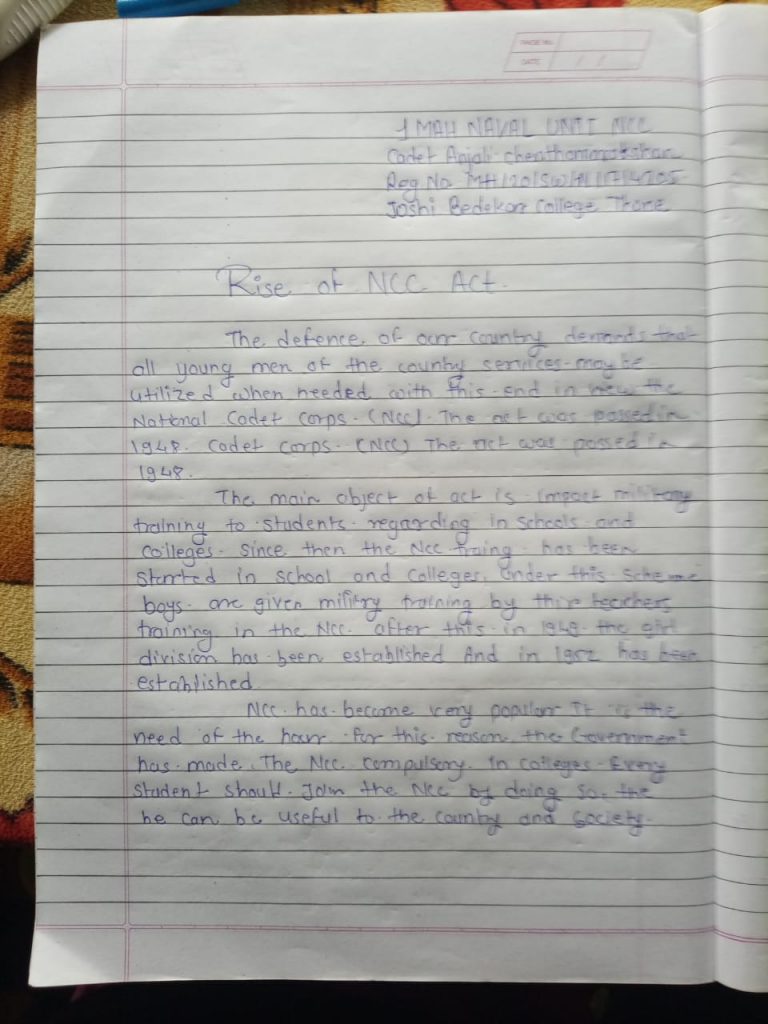 PAGE NO.
DATE
1 MAH NAVAL UNIT NCC
Cadet Anjali
Reg No MH
Joshi Bedekar College Thane
Rise of NCC Act.
The defence of our country demands that
all young men of the county services may be
utilized when needed with this end in view the
National Cadet corps. (NCC). The act was passed in
1948. Cadet corps. (NCC) The act was passed in
1948.
The main object of act is impact military
training to students regarding in schools and
colleges. Since then the NCC traing has been
started in school and colleges. Under this scheme
boys are given militry training by thir teachers
training in the NCC. after this in 1949 the girl
division has been established And in 1952 has been
established.
NCC has become very popular It is the
need of the hour for this reason the Government
has made. The NCC compulsory in colleges. Every
student should Join the NCC by doing so the
he can be useful to the country and society.